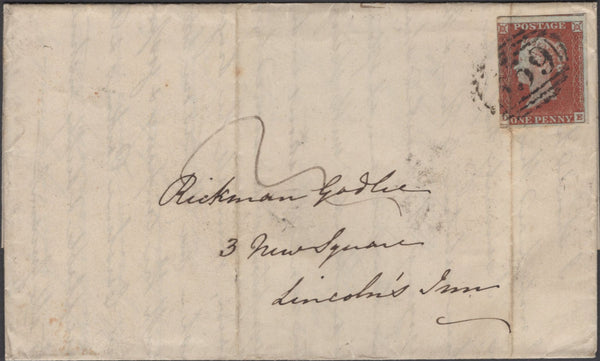 POSTAGE
ONE PENNY
E
Rickman Godlee
3 New Square
Lincoln's Inn